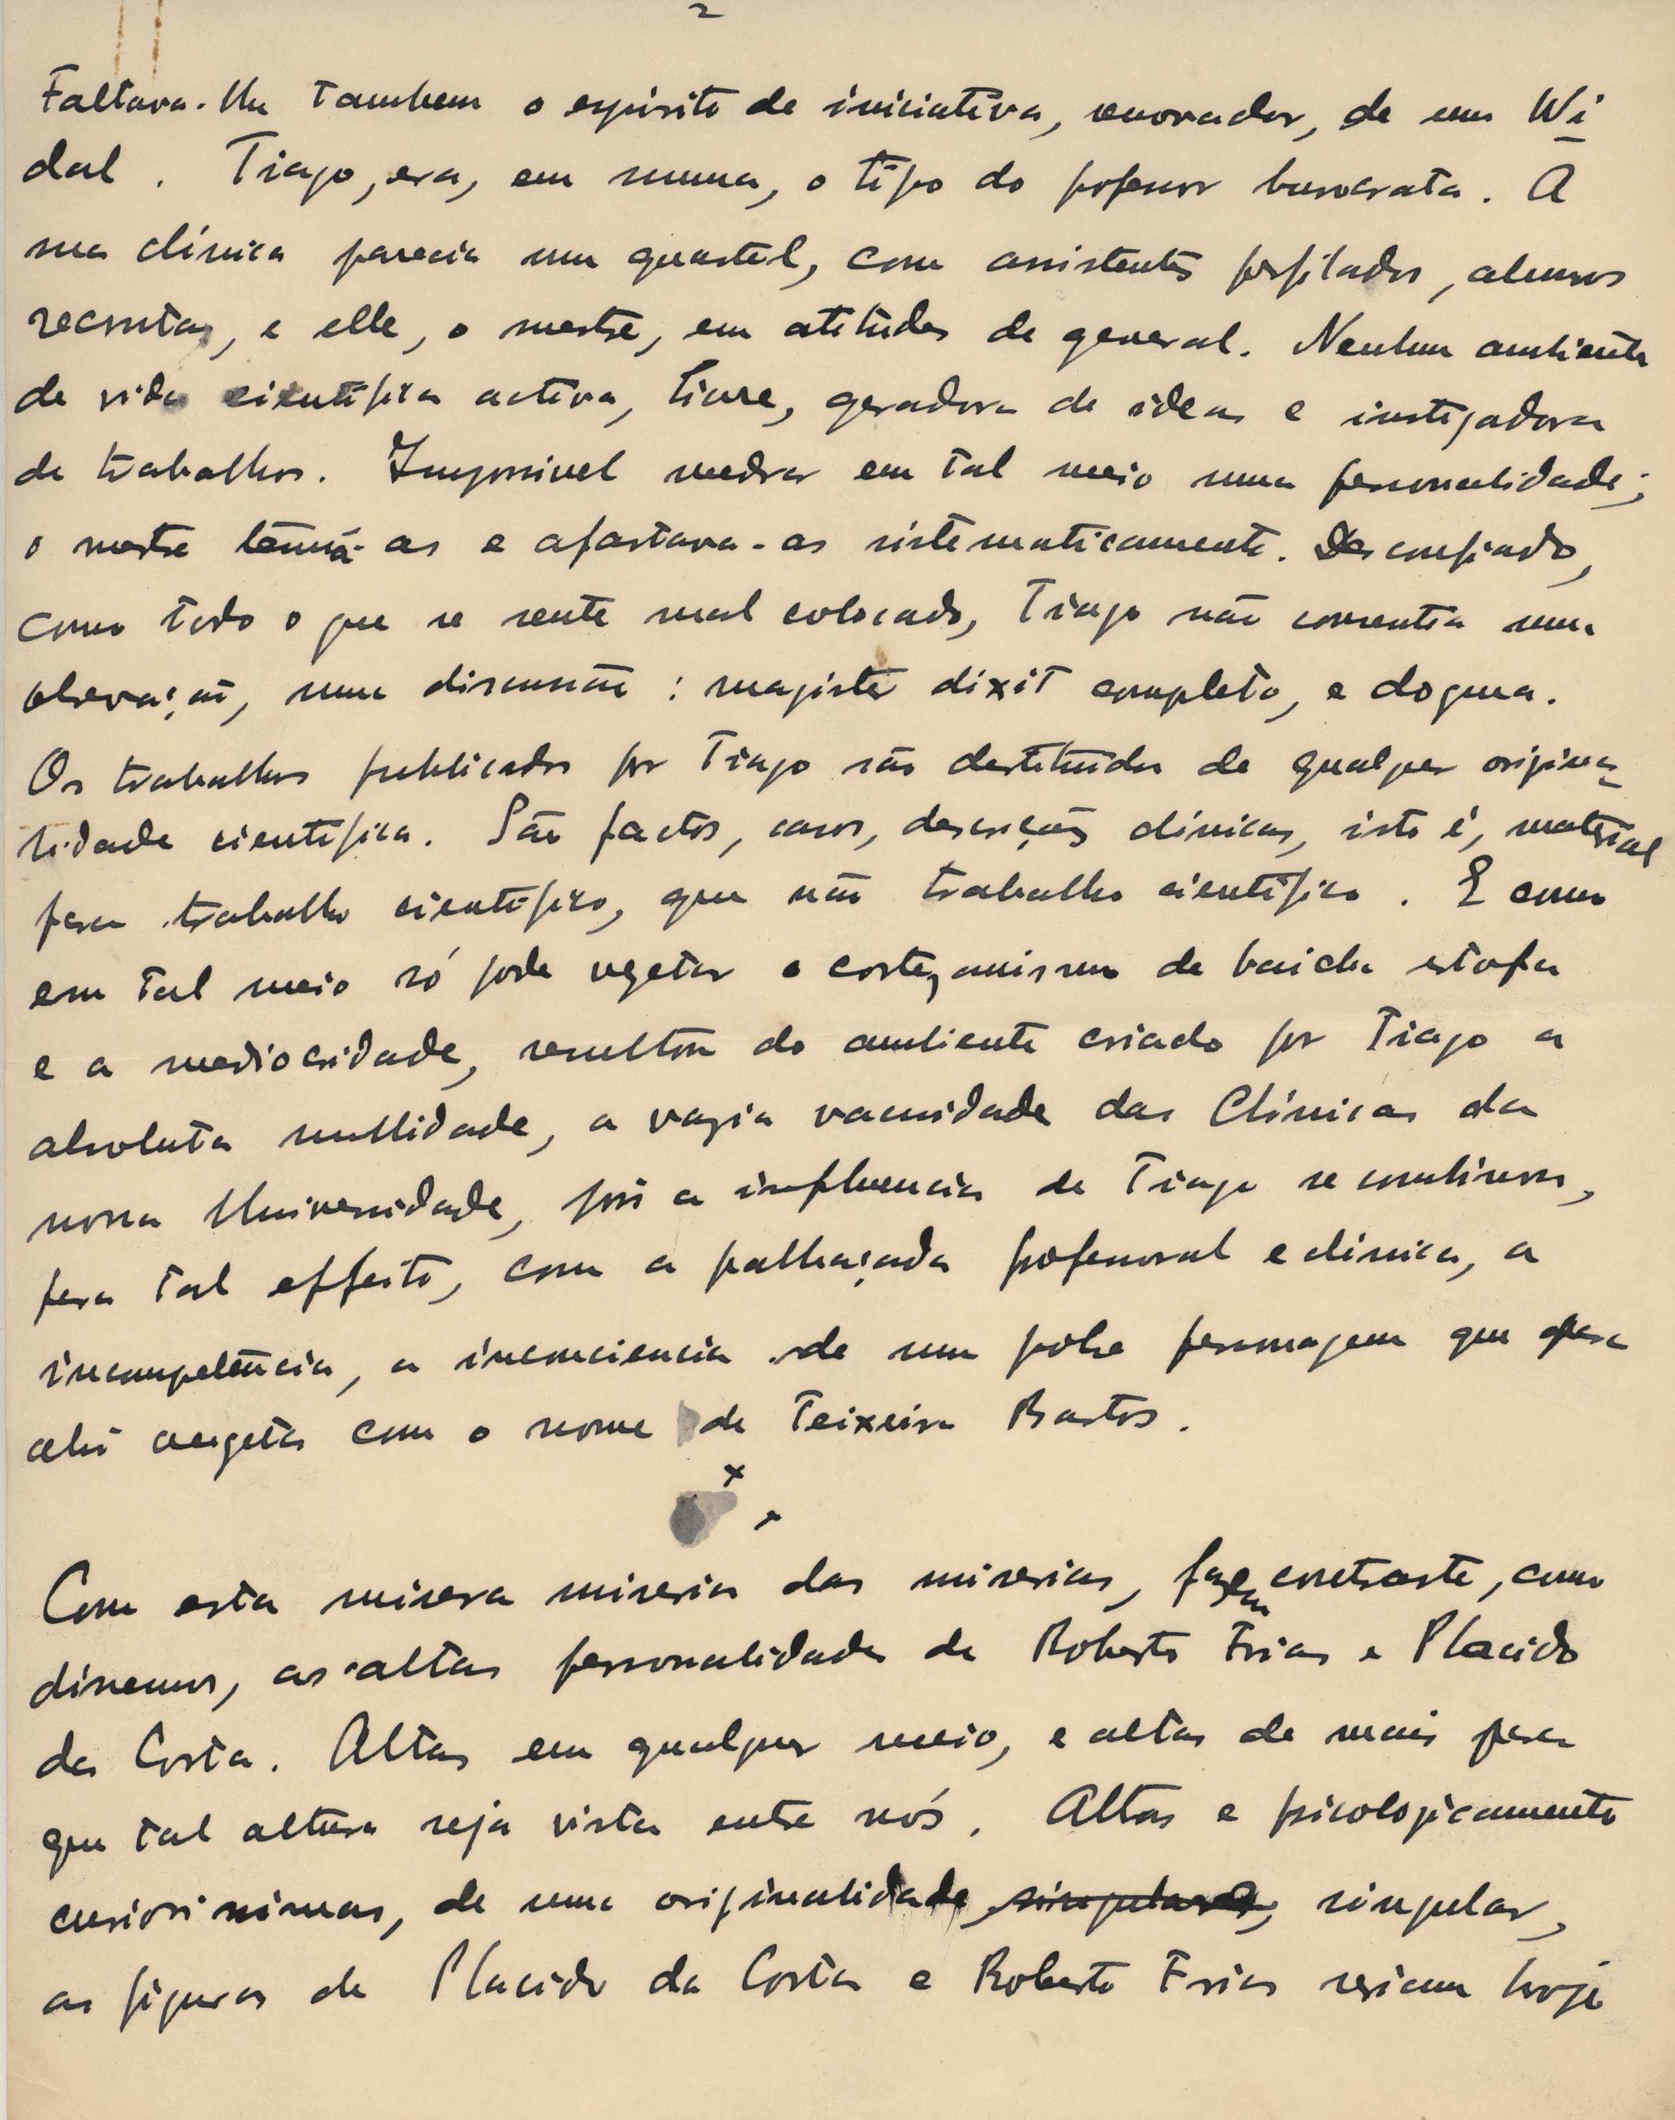 2
Faltava-lhe tambem o espirito de iniciativa, renovador, de um Wi
dal. Tiago, era, em suma, o tipo do professor burocrata. A
sua clinica parecia um quartel, com assistentes perfilados, alunos
recrutas, e elle, o mestre, em atitudes de general. Nenhum ambiente
de vida cientifica activa, livre, geradora de ideas e instigadora
de trabalhos. Impossivel medrar em tal meio uma personalidade;
o mestre temia-as e afastava-as sistematicamente. Desconfiado,
como todo o que se sente mal colocado, Tiago não consentia uma
observação, uma discussão: magister dixit completo, e dogma.
Os trabalhos publicados por Tiago são destituidos de qualquer origina-
lidade cientifica. São factos, casos, descrições clinicas, isto é, material
para trabalho cientifico, que não trabalho cientifico. E como
em tal meio só pode vegetar o cortezanismo de baicha estofa
e a mediocridade, resultou do ambiente criado por Tiago a
absoluta nullidade, a vazia vacuidade das Clinicas da
nossa Universidade, pois a influencia de Tiago se combinou,
para tal effeito, com a palhaçada professoral e clinica, a
incompetência, a inconsciencia de um pobre personagem que para
ahi vegeta com o nome de Teixeira Bastos.
x
Com esta misera miseria das miserias, fazem contraste, como
dissemos, as altas personalidades de Roberto Frias e Placido
da Costa. Altas em qualquer meio, e altas de mais para
que tal altura seja vista entre nós. Altas e psicologicamente
curiosissimas, de uma originalidade, singular,
as figuras de Placido da Costa e Roberto Frias seriam hoje